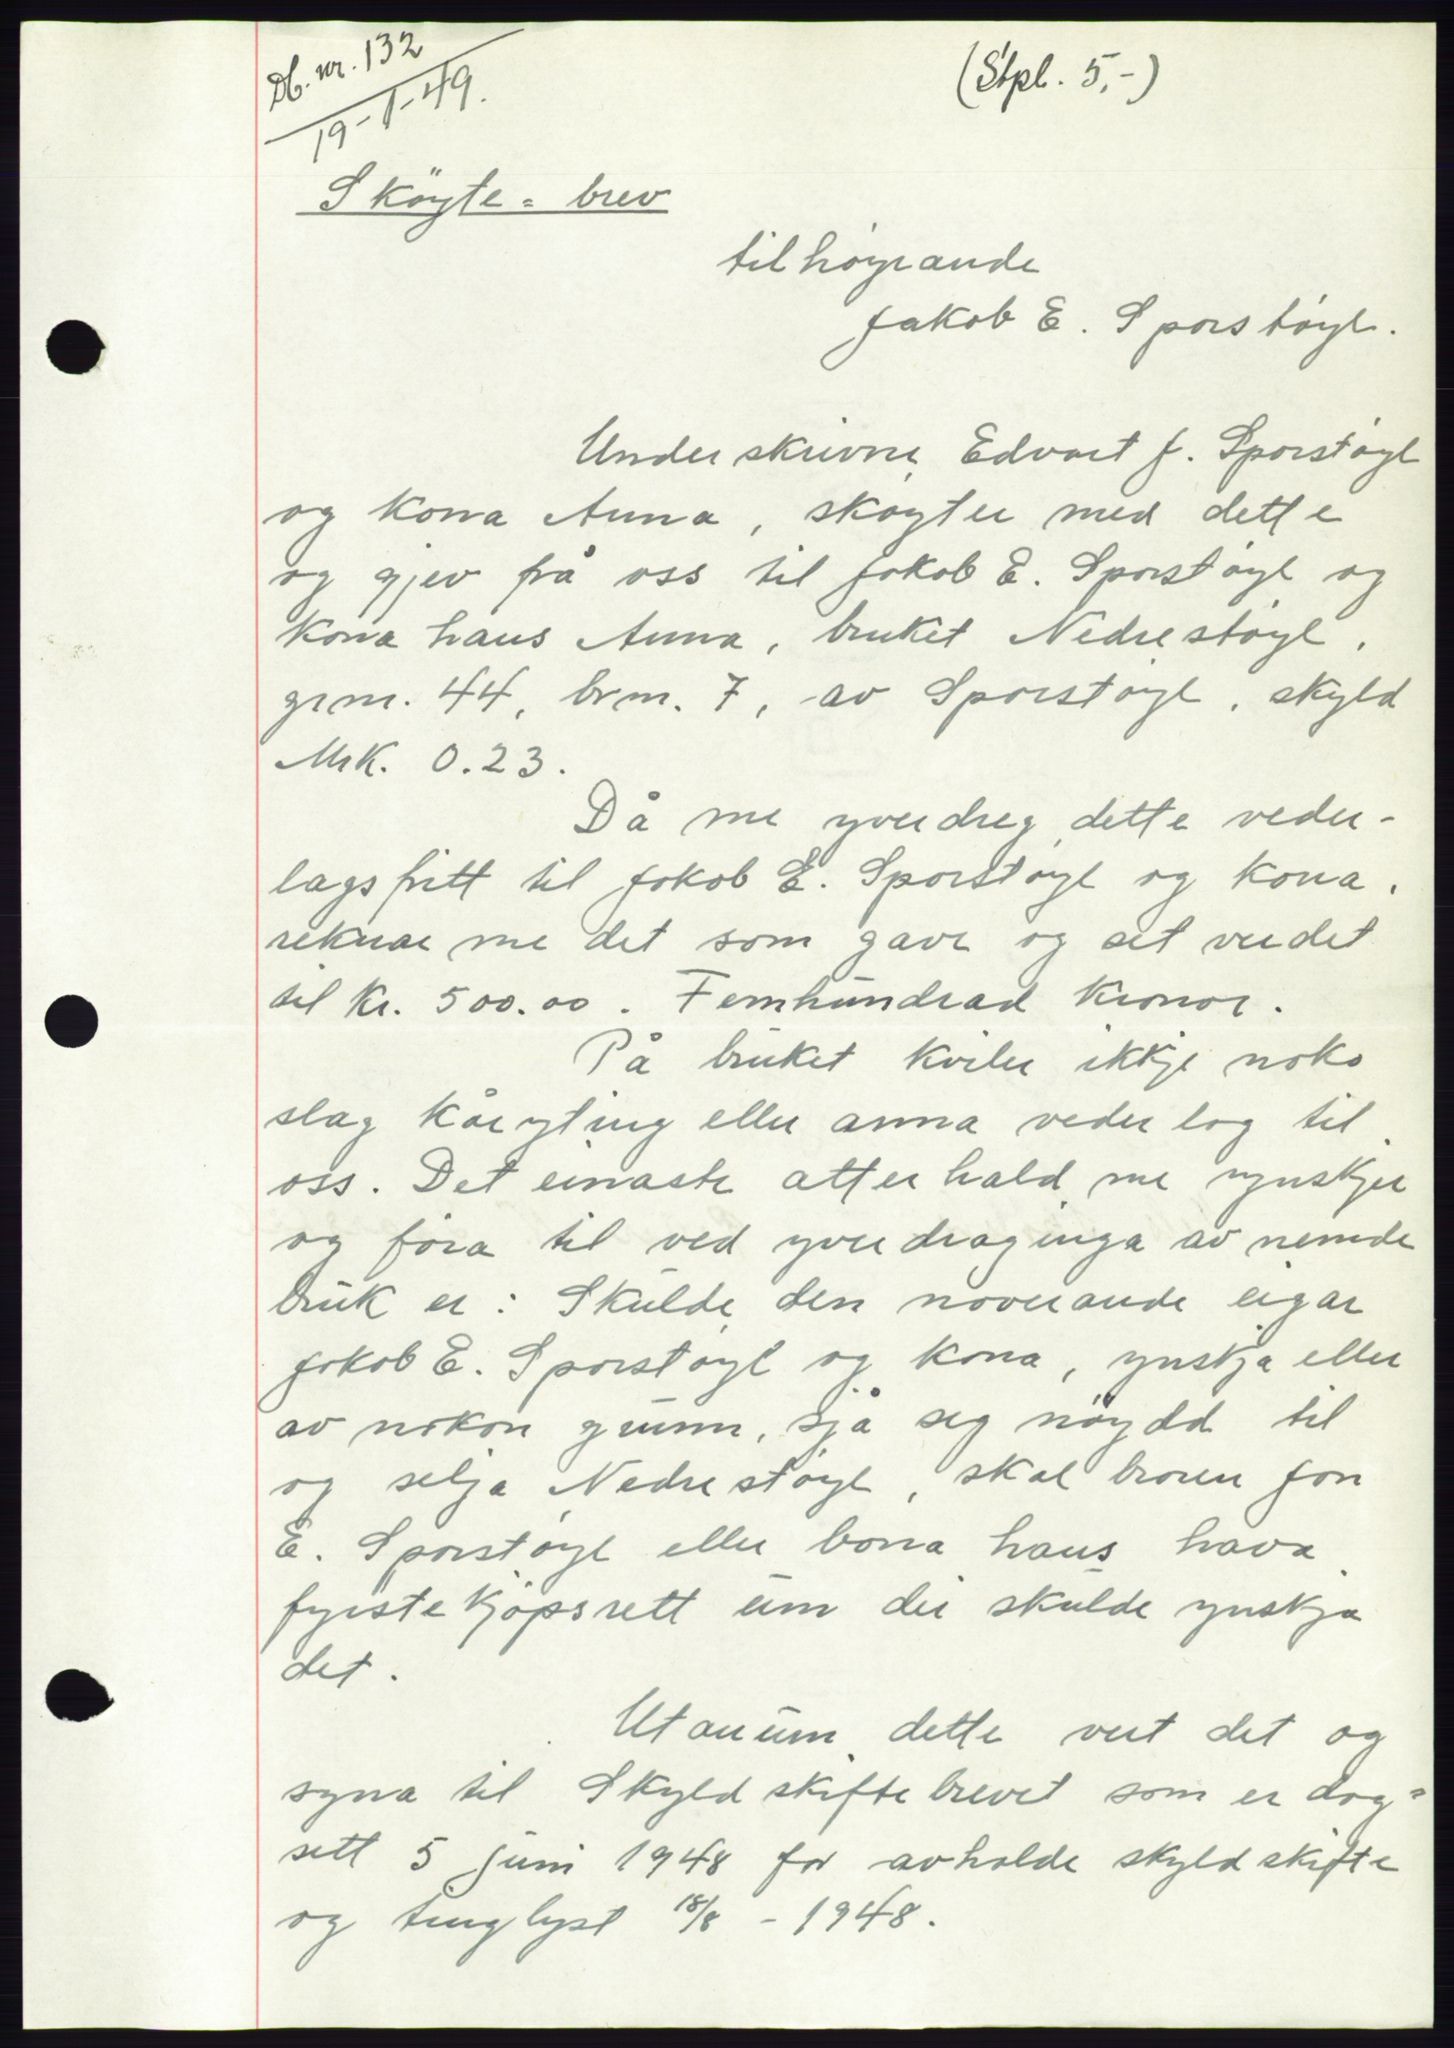 Db. nr. 132
19-1-49.
(Stpl. 5,-)
Sköyte = brev
tilhöyrande
Jakob E. Sporstöyl.
Underskrivne Edvart J. Sporstöyl
og kona Anna, sköyter med dette
og gjev frå oss til Jakob E. Sporstöyl og
kona hans Anna, bruket Nedrestöyl,
grnr. 44, brnr. 7, av Sporstöyl, skyld
Mrk. 0.23.
Då me yverdreg dette veder-
lagsfritt til Jakob E. Sporstöyl og kona,
reknar me det som gave og set verdet
til kr. 500.00. Femhundrad kronor.
På bruket kviler ikkje noko
slag kåryting eller anna vederlag til
oss. Det einaste atterhald me ynskjer
og föra til ved yverdraginga av nemde
bruk er: Skulde den noverande eigar
Jakob E. Sporstöyl og kona, ynskja eller
av nokon grunn, sjå seg nöydd til
og selja Nedrestöyl, skal broren Jon
E. Sporstöyl eller borna hans hava
fyrstekjöpsrett um dei skulde ynskja
det.
Utanum dette vert det og
syna til Skyldskiftebrevet som er dag=
sett 5 juni 1948 for avholde skyldskifte
og tinglyst 18/8 - 1948.